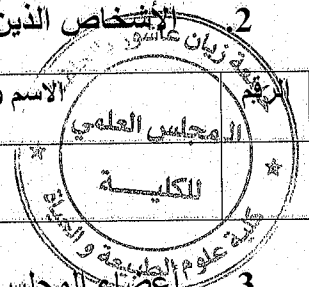 2. الأشخاص الذين
الرقم الاسم و
جامعة زيان عاشور
المجلس العلمي
للكليـــة
كلية علوم الطبيعة و الحياة
3. أعضاء المجلس